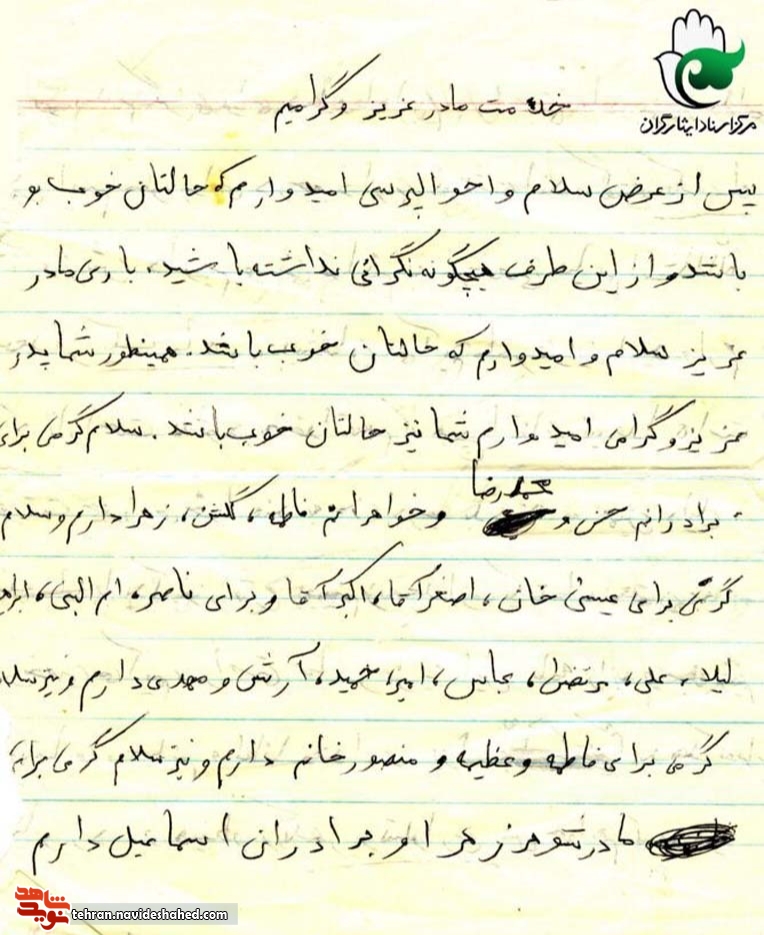 مرکز اسناد ایثارگران
خدمت مادر عزیز و گرامیم
پس از عرض سلام و احوالپرسی امیدوارم که حالتان خوب بو
باشد و از این طرف هیچگونه نگرانی نداشته باشید. باری مادر
عزیز سلام و امیدوارم که حالتان خوب باشد. همینطور شما پدر
عزیز و گرامی امیدوارم شما نیز حالتان خوب باشد. سلام گرمی برای
برادرانم حسن و محمدرضا و خواهرانم فاطمه، گلشن، زهرا دارم و سلام
گرمی برای عیسی خان، اصغرآقا، اکبرآقا و برای ناصر، ام البنی،
لیلا، علی، مرتضی، عباس، امیر، حمید، آرش و مهدی دارم و نیز سلا
گرمی برای فاطمه و عظیمه و منصور خانم دارم و نیز سلام گرمی برای
مادر شوهر زهرا و برادران اسماعیل دارم
نوید شاهد
tehran.navideshahed.com